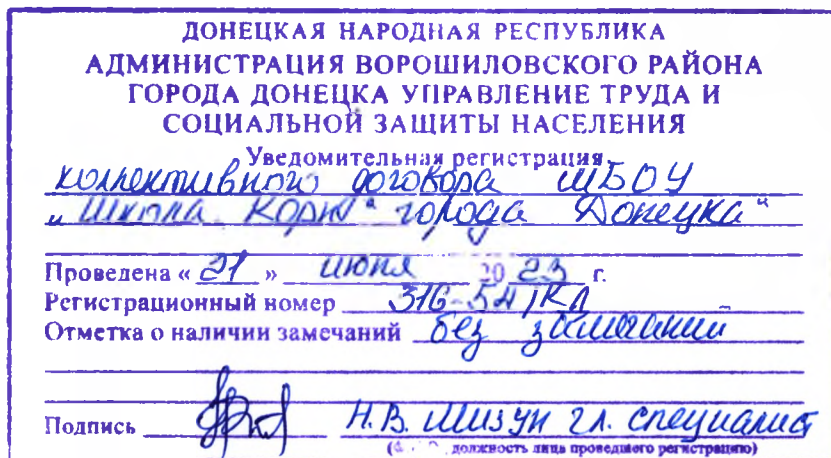 ДОНЕЦКАЯ НАРОДНАЯ РЕСПУБЛИКА
АДМИНИСТРАЦИЯ ВОРОШИЛОВСКОГО РАЙОНА
ГОРОДА ДОНЕЦКА УПРАВЛЕНИЕ ТРУДА И
СОЦИАЛЬНОЙ ЗАЩИТЫ НАСЕЛЕНИЯ
Уведомительная регистрация
коллективного договора МБОУ
„Школа города Донецка“
Проведена « 21 » 20 23 г.
Регистрационный номер
Отметка о наличии замечаний без замечаний
Подпись Н.В. Мизун гл. специалист
должность лица проведшего регистрацию)